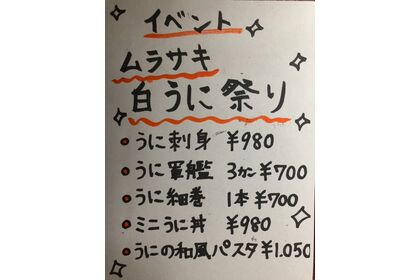 イベント
ムラサキ
白うに祭り
うに刺身 ¥980
うに軍艦 3カン ¥700
うに細巻 1本 ¥700
ミニうに丼 ¥980
うにの和風パスタ ¥1.050